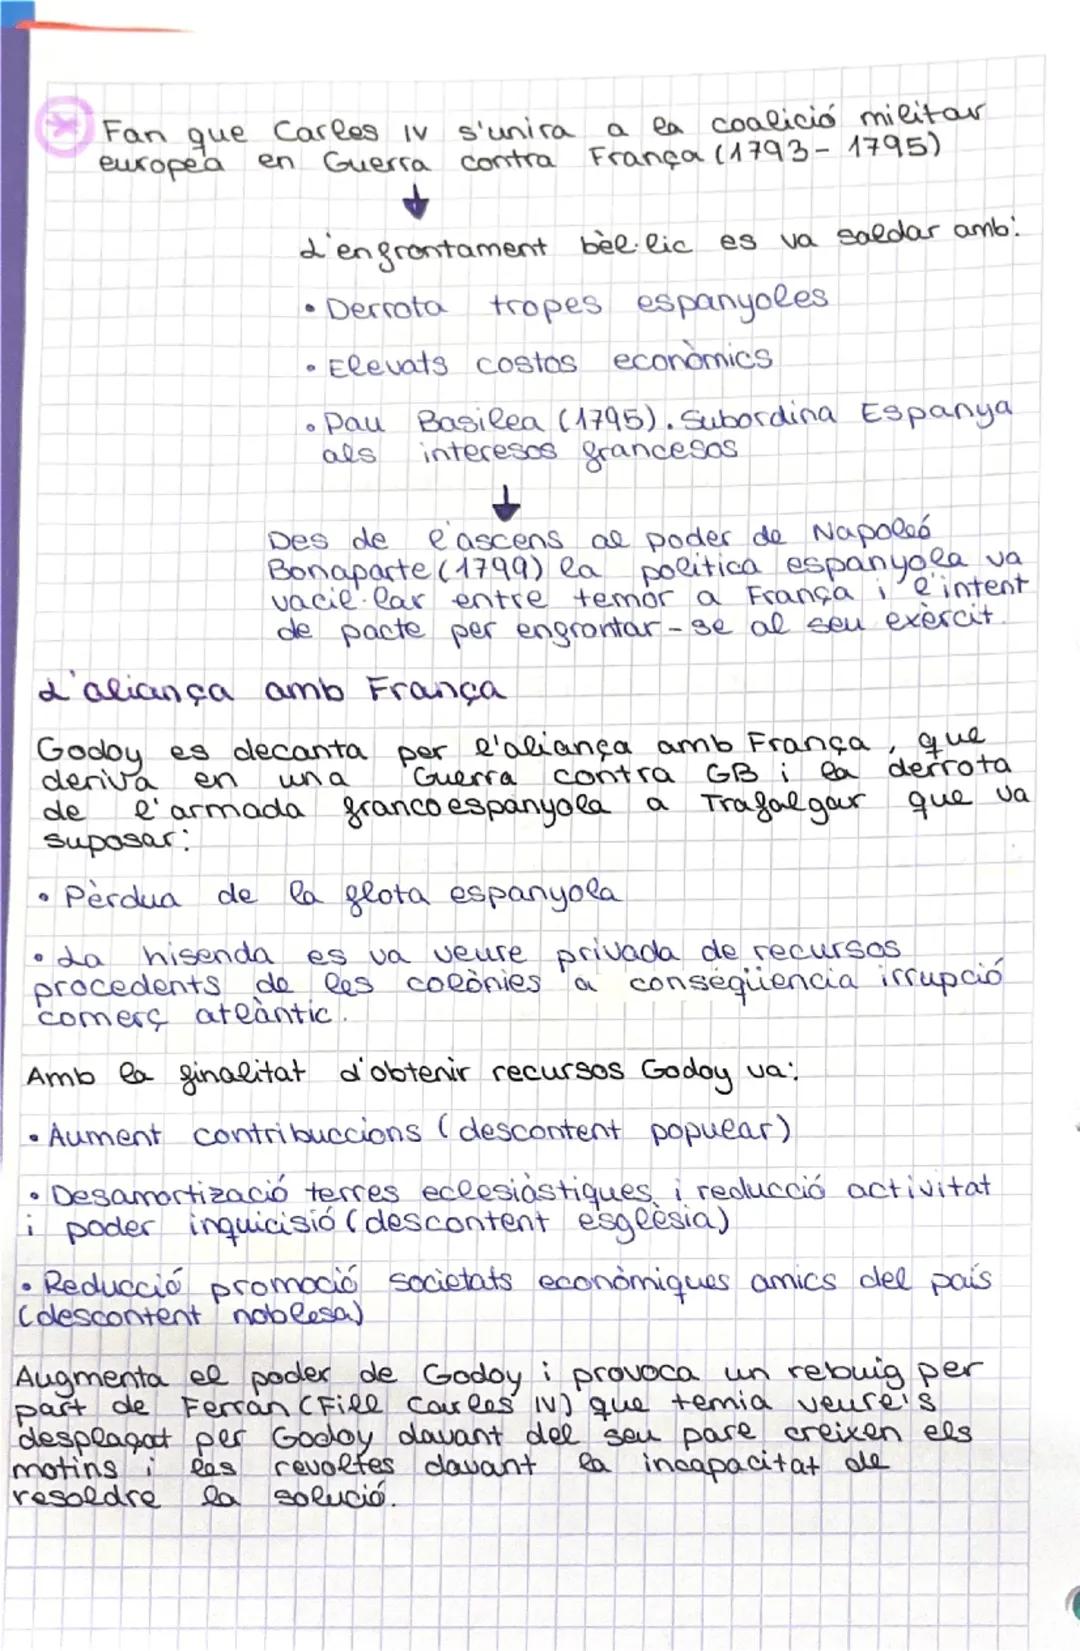 Fan que Carles IV s'unira a la coalició militar
europea en Guerra contra França (1793 - 1795)
L'enfrontament bèl·lic es va saldar amb:
• Derrota tropes espanyoles
• Elevats costos econòmics
• Pau Basilea (1795). Subordina Espanya
als interesos francesos
Des de l'ascens al poder de Napoleó
Bonaparte (1799) la política espanyola va
vacil·lar entre temor a França i l'intent
de pacte per enfrontar-se al seu exèrcit.
L'aliança amb França
Godoy es decanta per l'aliança amb França, que
deriva en una Guerra contra GB i la derrota
de l'armada francoespanyola a Trafalgar que va
suposar:
• Pèrdua de la flota espanyola
• La hisenda es va veure privada de recursos
procedents de les colònies a conseqüencia irrupció
comerç atlàntic.
Amb la finalitat d'obtenir recursos Godoy va:
• Aument contribuccions (descontent popular)
• Desamortizació terres eclesiàstiques i reducció activitat
i poder inquicisió (descontent esglèsia)
• Reducció promoció societats econòmiques amics del país
(descontent noblesa)
Augmenta el poder de Godoy i provoca un rebuig per
part de Ferran (Fill Carles IV) que temia veure's
desplaçat per Godoy davant del seu pare creixen els
motins i las revoltes davant la incapacitat de
resoldre la solució.